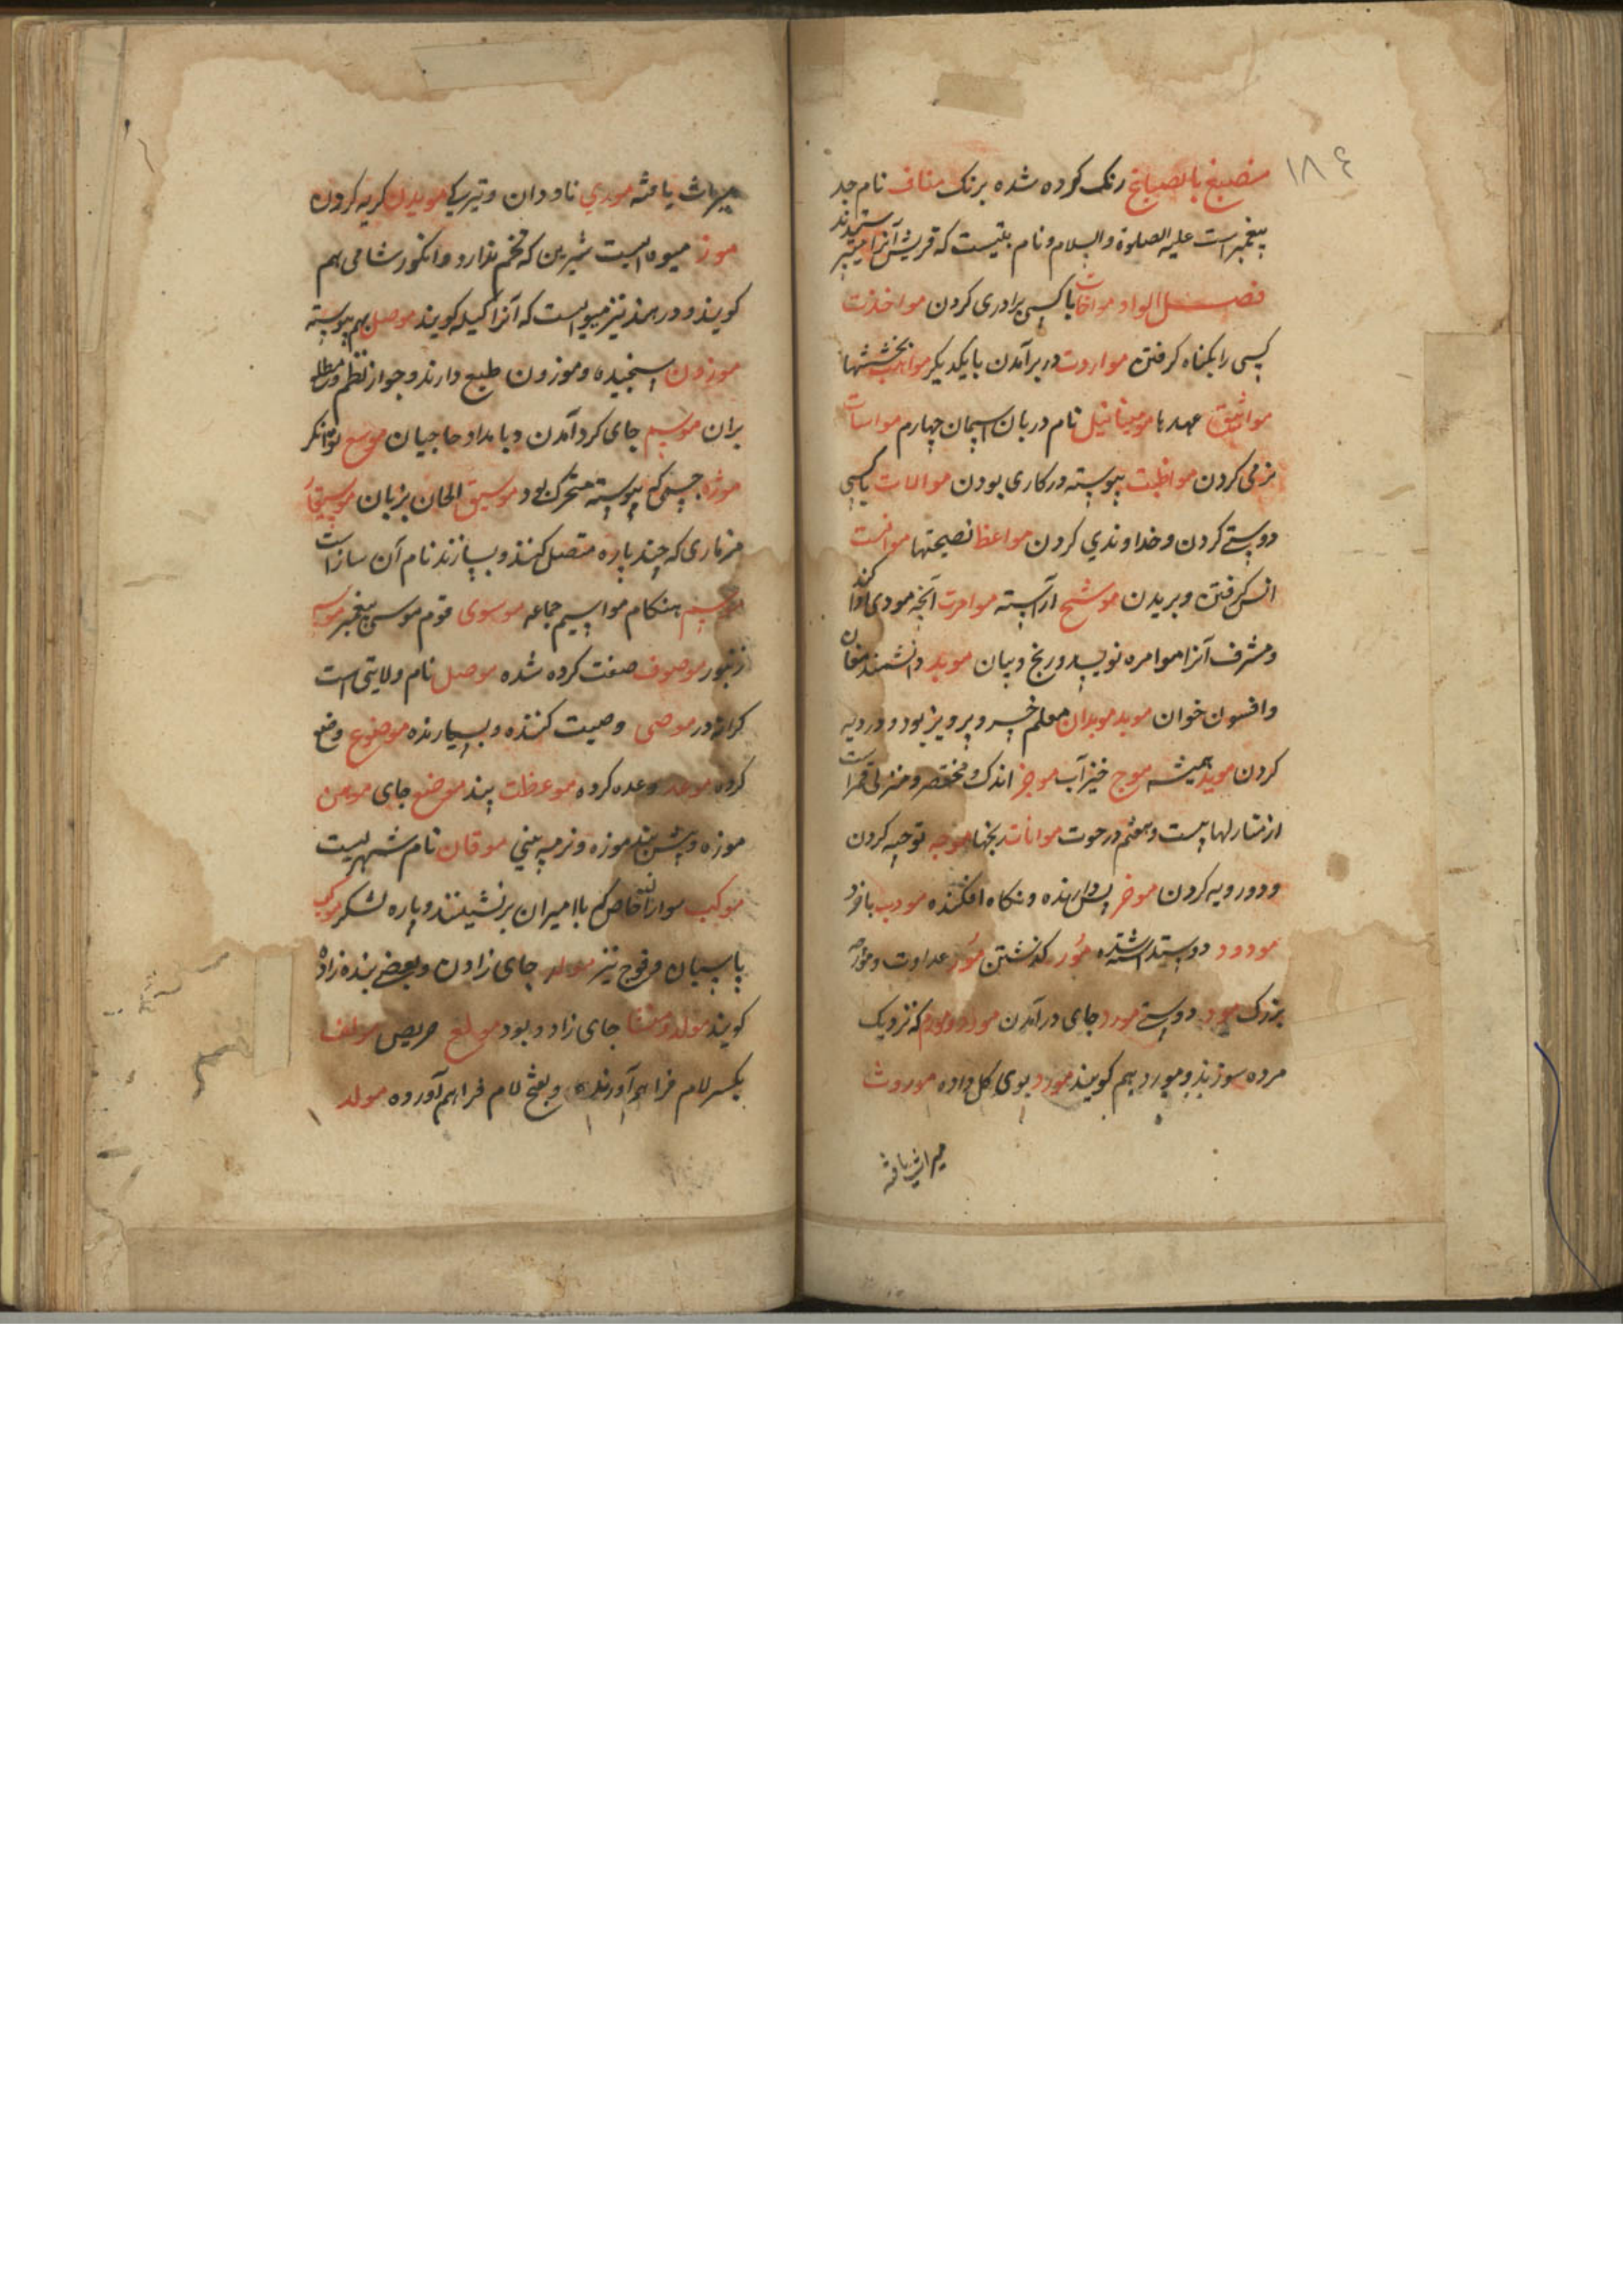 ۱۸٤
منصبغ بالصبایغ رنک کرده شده برنک مناف نام جد
پیغمبر است علیه الصلوة والسلام و نام بتیست که قریش آنرا میپرستیدند
فصل الواو مواخات با کسی برادری کردن مواخذت
کسی را بکناه کرفتن مواردت در برآمدن با یکدیکر مواهب بخششها
مواثیق عهدها مومیتائیل نام دربان آسمان چهارم مواسات
نرمی کردن مواظبت پیوسته در کاری بودن موالات با کسی
دوستی کردن و خداوندی کردن مواعظ نصیحتها موانست
انس کرفتن و بریدن موشح آراسته موامرت آنچه مودی ادا کند
و مشرف آنرا موامره نویسد و رنج و بیان موبد دانشمند مغان
و افسون خوان موبد موبدان معلم خسرو پرویز بود و دو رویه
کردن موبد همیشه موج خیز آب موجز اندک و مختصر و منزلی قمراست
از منازلها بیست و هفتم در حوت موانات رنجها موجه توجیه کردن
و دو رویه کردن موخر پس دارنده و نکاه افکننده مودب با خرد
مودود دوست داشته مور کذشتن مور عداوت و مورچه
بزرک مود دوستی مورد جای درآمدن مورد و مورم که نزدیک
مرده سوزند و مورد هم کویند مورد بوی کل داده موروث
میراث یافته
میراث یافته موری ناودان و تیریکی مویدن کریه کردن
موز میوه ایست شیرین که تخم ندارد و انکور شامی هم
کویند و در هند نیز میوه ایست که آنرا کیله کویند موصل بهم پیوسته
موزون سنجیده و موزون طبع دارند و جواز نظم و مطلع
بران موسم جای کرد آمدن و بامداد حاجیان موسع توانکر
موزه چیزی که پیوسته متحرک بود موسیق الحان بزبان موسیقار
مزماری که چند پاره متصل کنند و بسازند نام آن ساز است
موسم هنکام مواسیم جماعه موسوی قوم موسی پیغمبر موسه
زنبور موصوف صفت کرده شده موصل نام ولایتی است
کرانه در موصی وصیت کننده و بسپارنده موضوع وضع
کرده موعد وعده کرده موعظت پند موضع جای مومن
موزه و پیش بند موزه و نرمه بینی موقان نام شهریست
موکب سواران خاص که با امیران برنشینند و پاره لشکر موکب
پاسبان و فوج نیز مولد جای زادن و بعضی بنده زاده
کویند مولد و منشا جای زاد و بود مولع حریص مولف
بکسر لام فراهم آورنده و بفتح لام فراهم آورده مولد